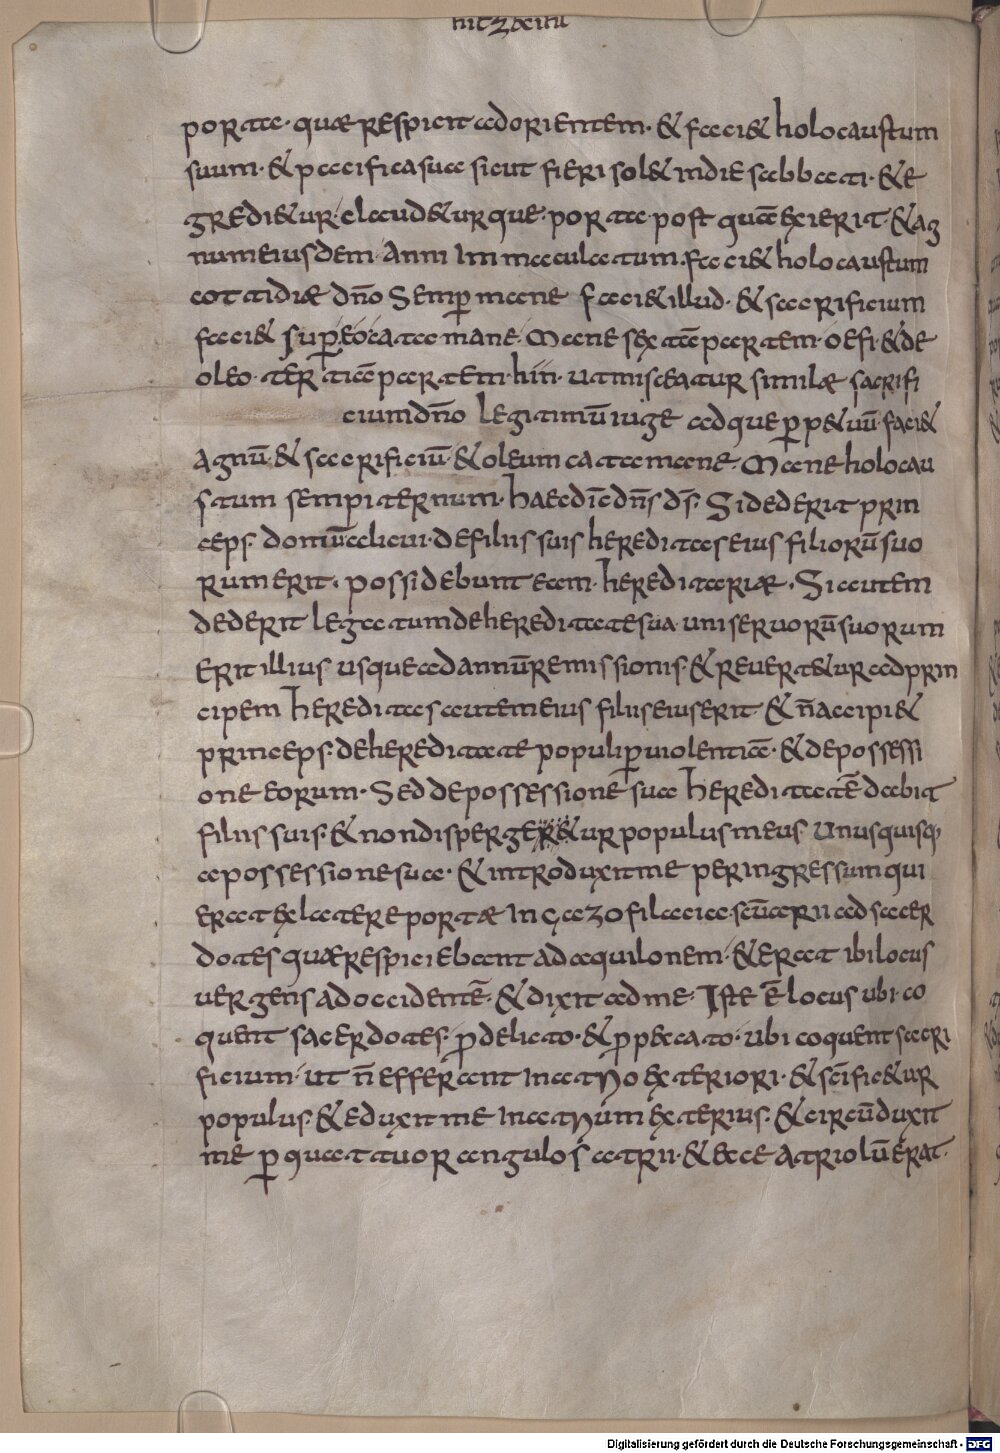 porta quae respicit ad orientem · & faci& holocaustum
suum · & pacifica sua sicut fieri sol& in die sabbati · & e
gredi&ur · claud&urque · porta · post quā exierit · & ag
num eiusdem · Anni Immaculatum · faci& holocaustum
cottidiæ dn̄o Semp mane faci& illud · & sacrificium
faci& sup eo cata mane · Mane sextā partem · oefi · & de
oleo · tertiā partem · hin · ut misceatur similæ sacrifi
cium dn̄o legitimū iuge adque pp&uū · faci&
Agnū · & sacrificiū · & oleum cata mane · Mane holocau
stum sempiternum · haec dic̄ dn̄s ds̄ · Si dederit prin
ceps · domū alicui · de filiis suis hereditas eius filiorū suo
rum erit · possidebunt eam · hereditariæ · Si autem
dederit legatum de hereditate sua uni seruorū suorum
erit illius usque ad annū remissionis · & reuert&ur ad prin
cipem hereditas autem eius filiis eius erit · & n̄ accipi&
princeps · de hereditate populi p uiolentiā · & de possessi
one eorum · Sed de possessione sua hereditatē dabit
filiis suis · & non disperger&ur populus meus Unusquisq;
a possessione sua · & introduxit me per ingressum qui
erat ex latere portæ In gazofilacia scūarii ad sacer
dotes quæ respiciebant ad aquilonem · & erat ibi locus
uergens ad occidentē · & dixit ad me · Iste ē locus ubi co
quent sacerdotes · p delicto · & p peccato · ubi coquent sacri
ficium · ut n̄ efferant In atrio exteriori · & scīfic&ur
populus · & eduxit me In atrium exterius · & circūduxit
me p quattuor angulos atrii · & ecce atriolū erat ·
Digitalisierung gefördert durch die Deutsche Forschungsgemeinschaft - DFG